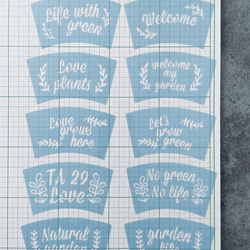 Life with
green
Welcome
Love
plants
welcome
my
garden
Love
grows
here
Let's
grow
green
TA 29
Love
No green
No life
Natural
garden
garden
life